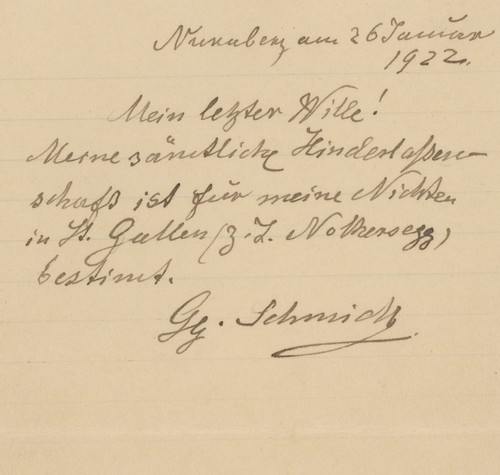 Nürnberg am 26 Januar
1922.
Mein letzter Wille!
Meine sämtliche Hinderlaßen-
schaft ist für meine Nichten
in St. Gallen (z. Z. Notkersegg)
bestimt.
Gg. Schmidt